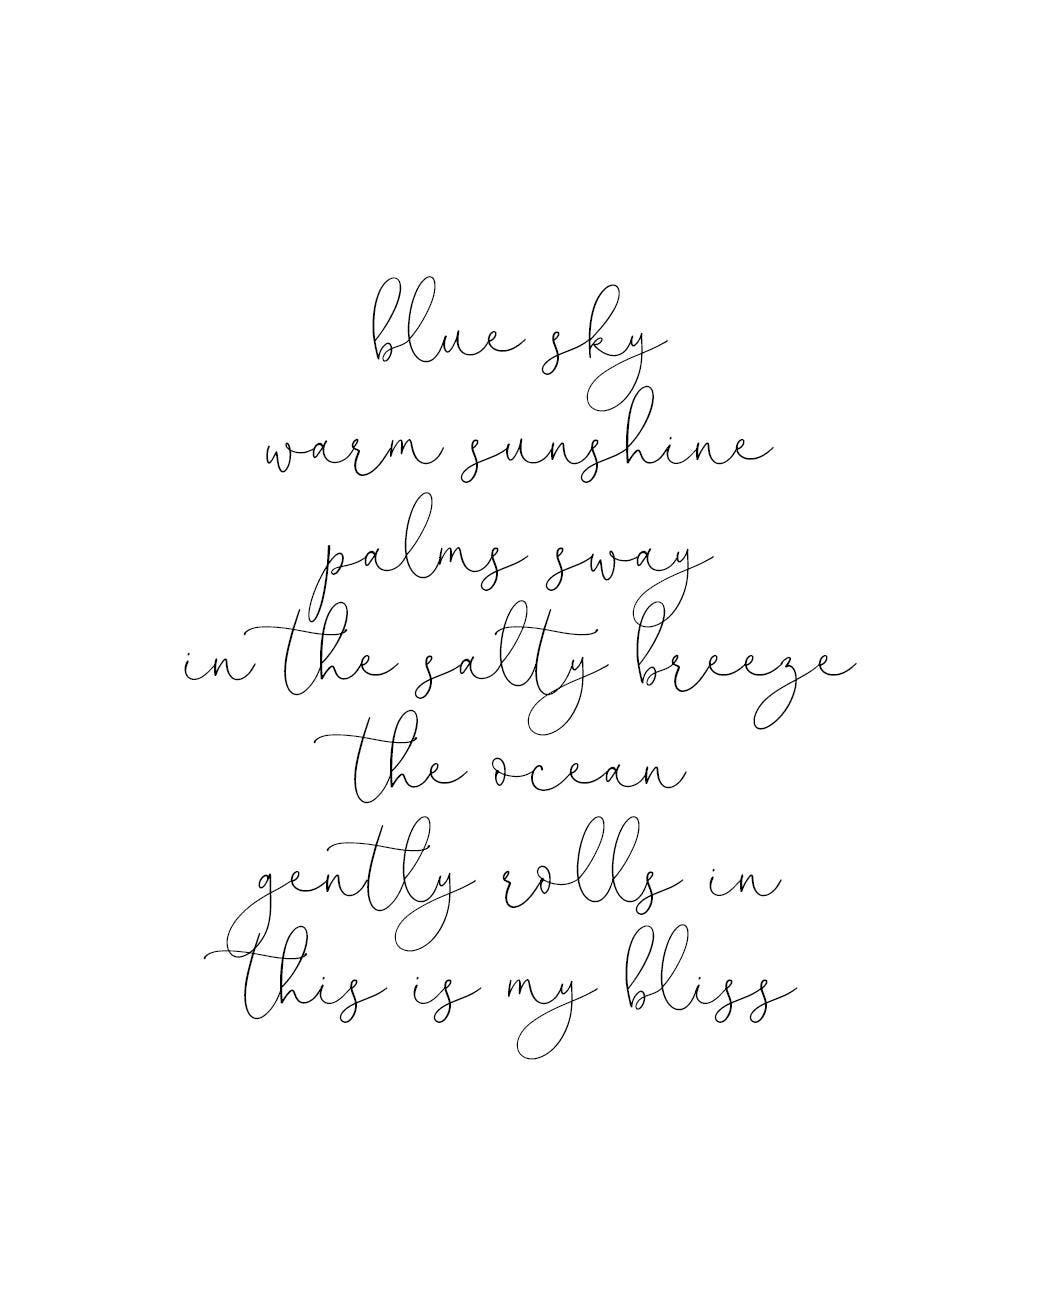 blue sky
warm sunshine
palms sway
in the salty breeze
the ocean
gently rolls in
this is my bliss